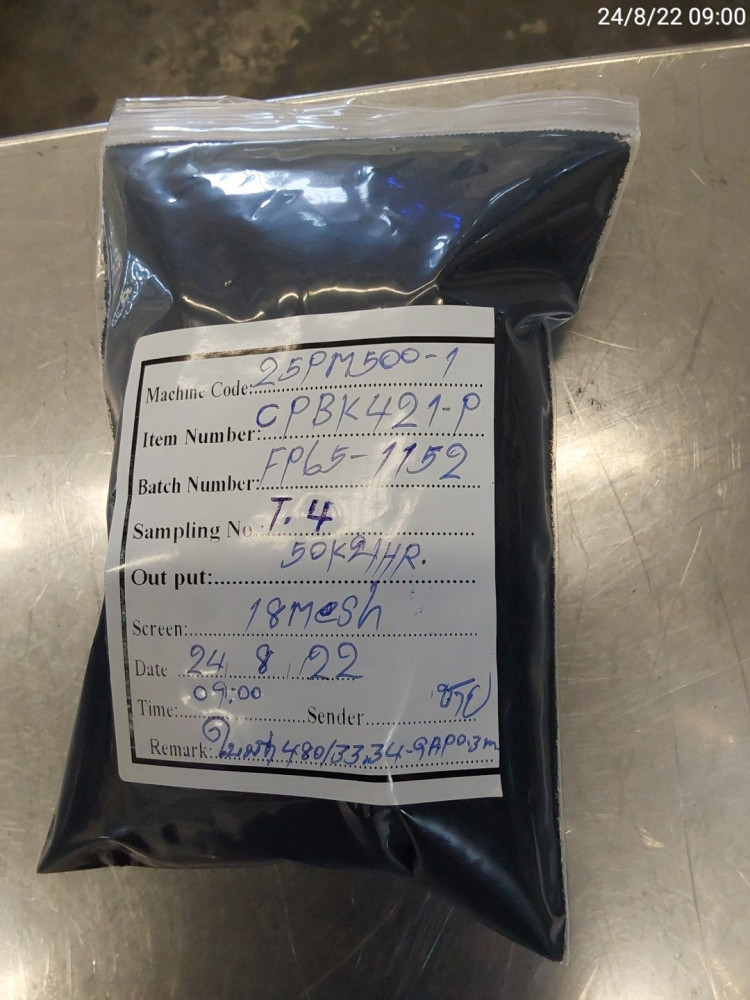 24/8/22 09:00
Machine Code: 25PM500-1
Item Number: CPBK421-P
Batch Number: FP65-1152
Sampling No.: T.4
Out put: 50K2/HR.
Screen: 18mesh
Date 24 8 22
Time: 09:00 Sender
Remark: ใบมีด 480/33,34-GAP0.3m